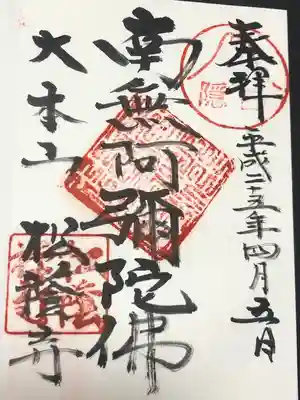 奉拝
平成二十五年四月五日
南無阿彌陀佛
大本山 松蔭寺